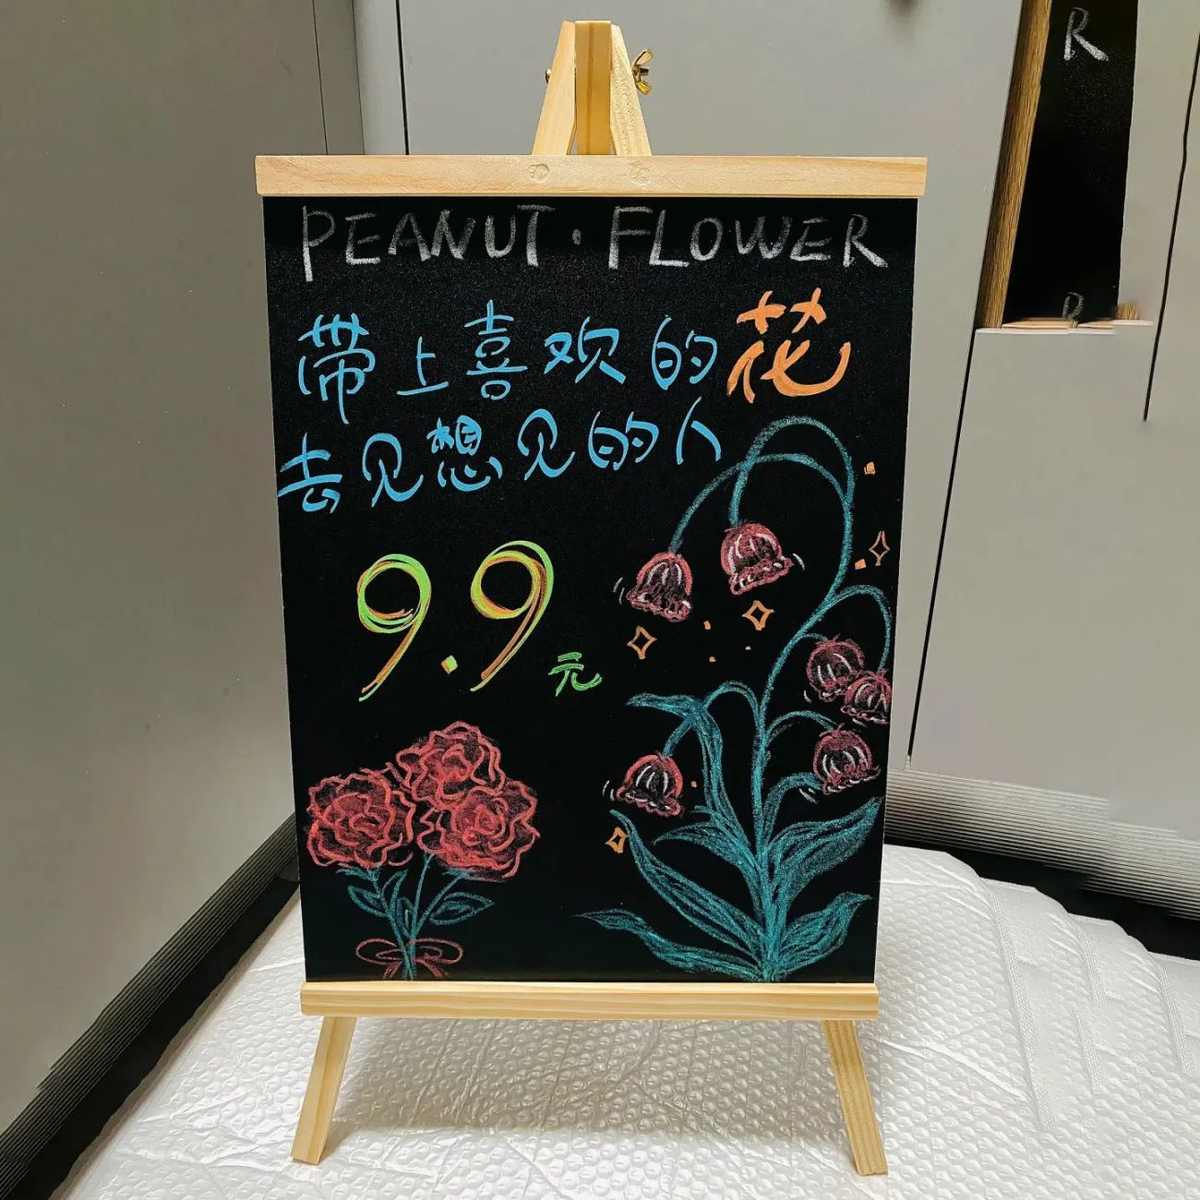 PEANUT·FLOWER
带上喜欢的花
去见想见的人
9.9元
R
R